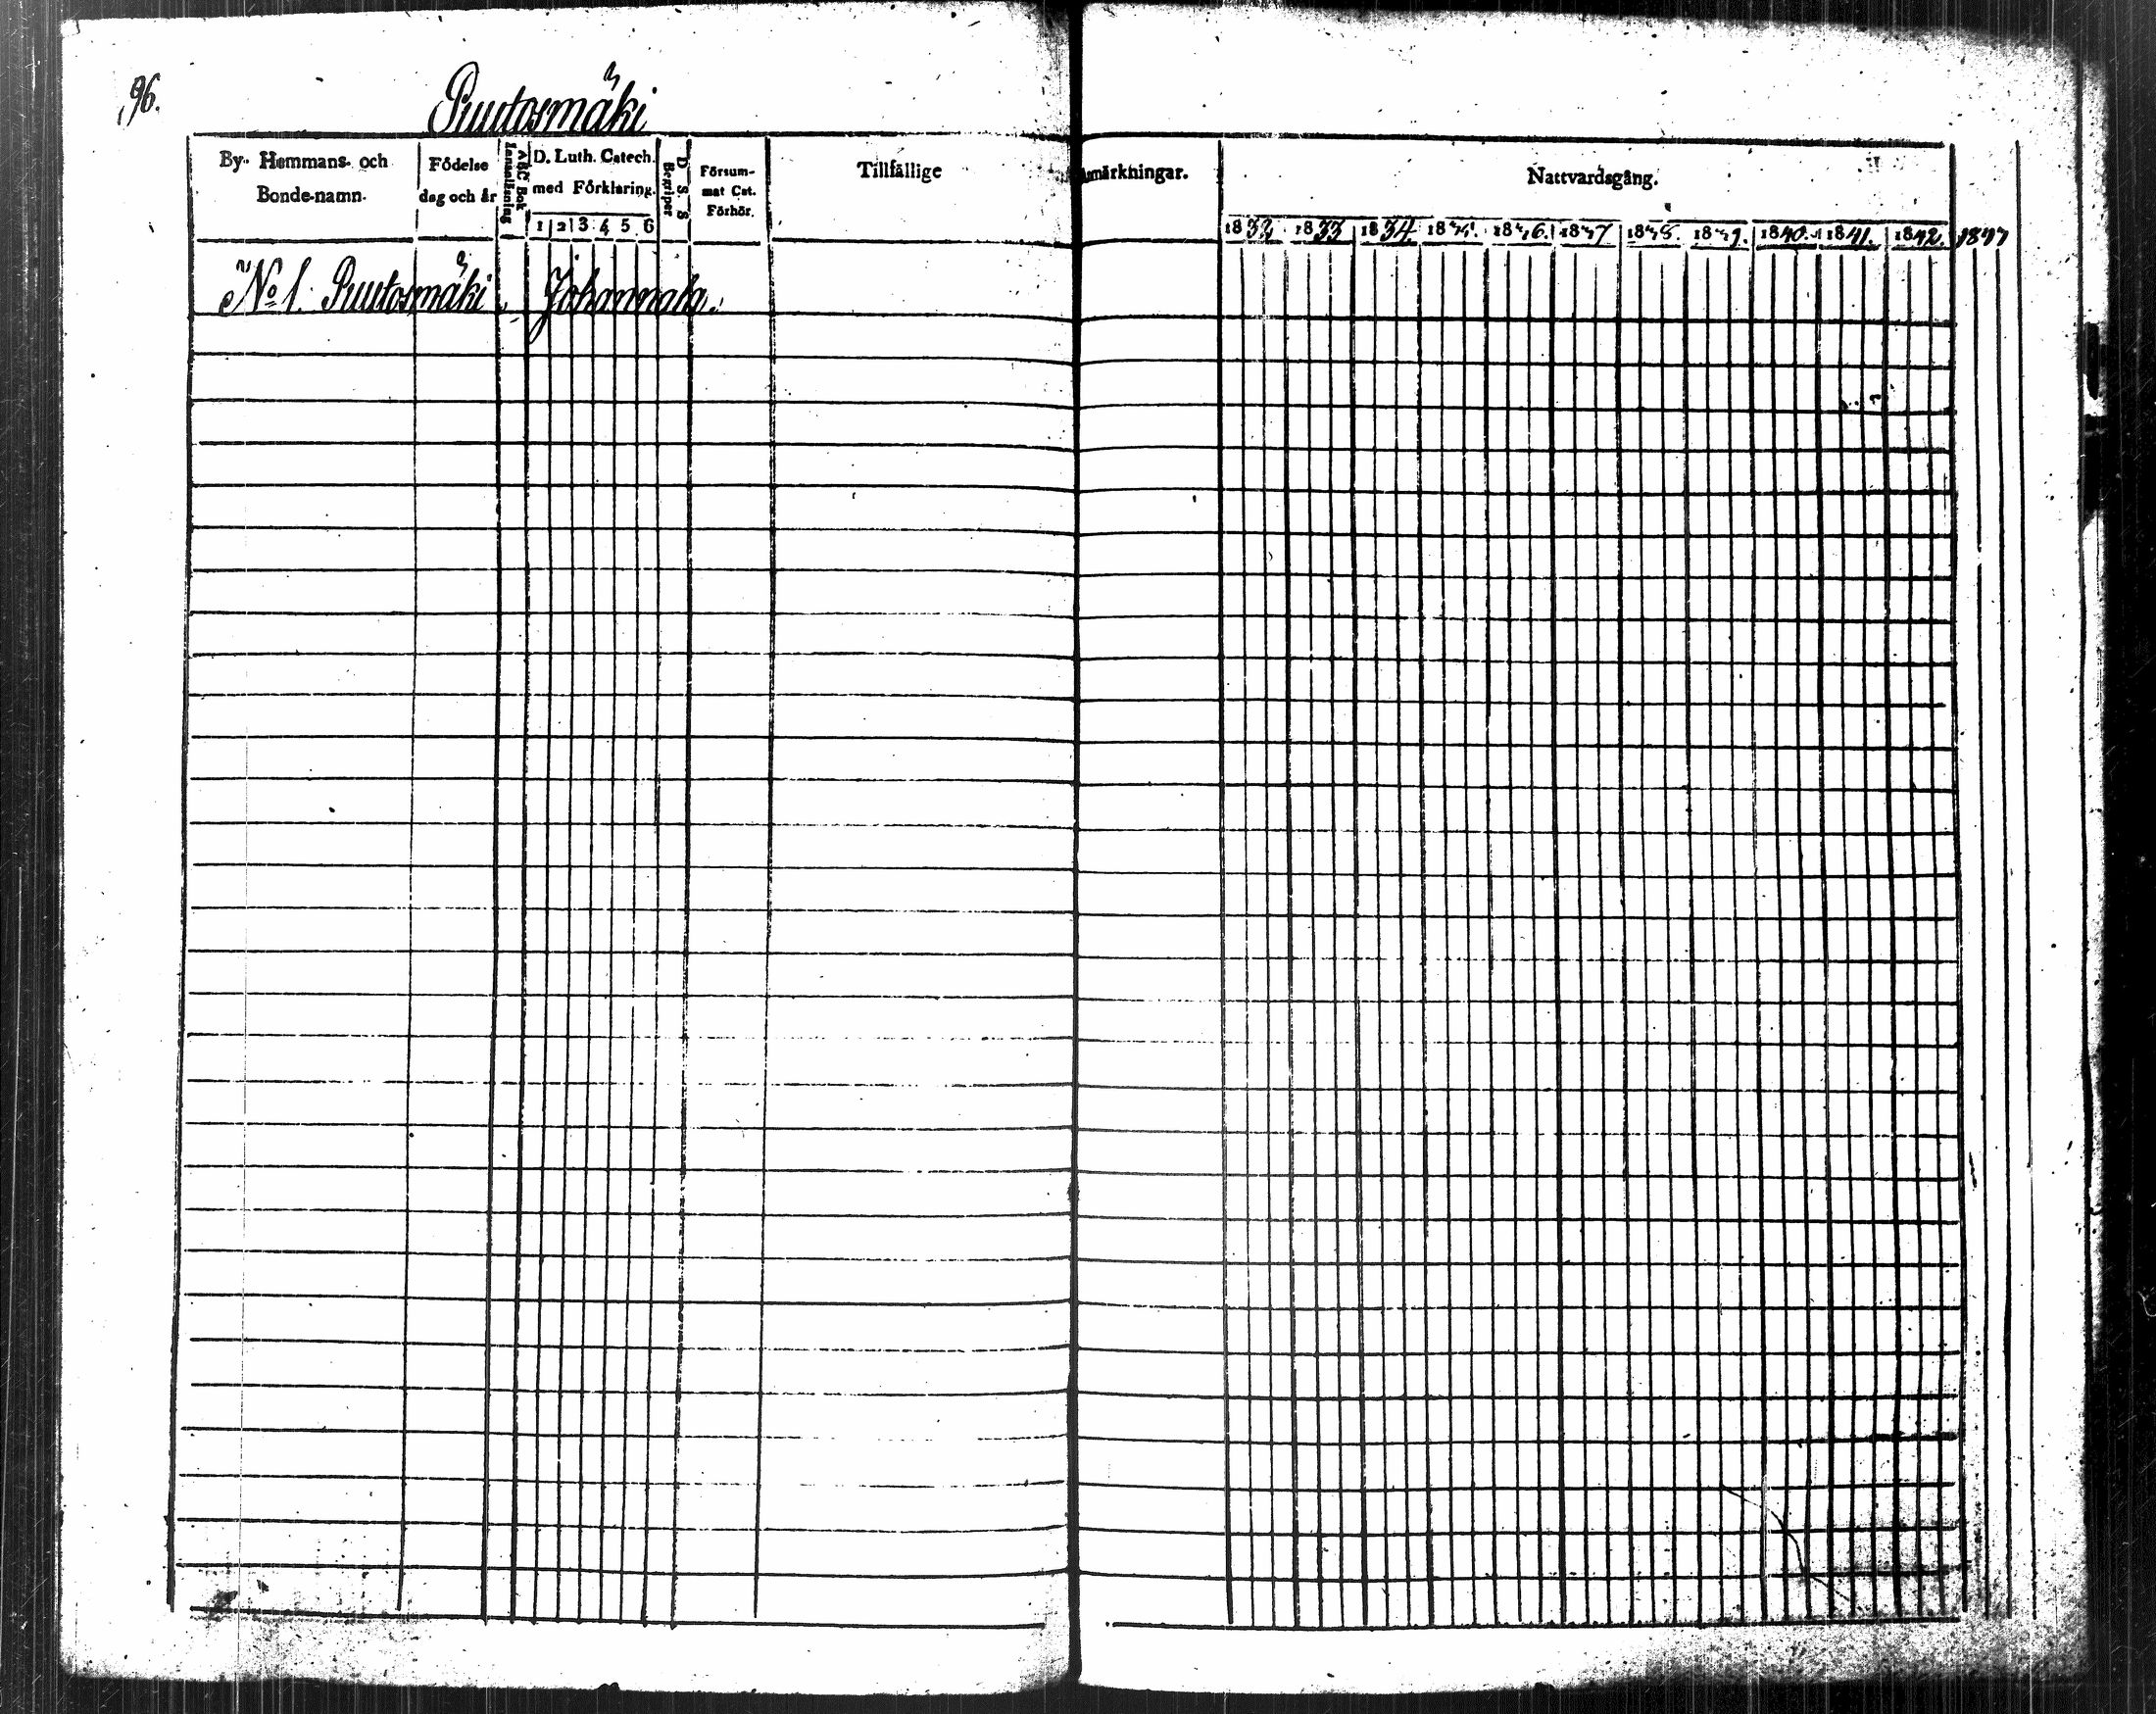 96.
Puutosmäki
By- Hemmans- och
Bonde-namn.
Födelse
dag och år
ABC Bok
Innanläsning
D. Luth. Catech.
med Förklaring.
1 2 3 4 5 6
D. S. S
Begriper
Försum-
mat Cat.
Förhör.
Tillfällige
Anmärkningar.
Nattvardsgång.
1832. 1833 1834. 1835. 1836. 1837 1838. 1839. 1840. 1841. 1842. 1843
No 1. Puutosmäki, Johannala.